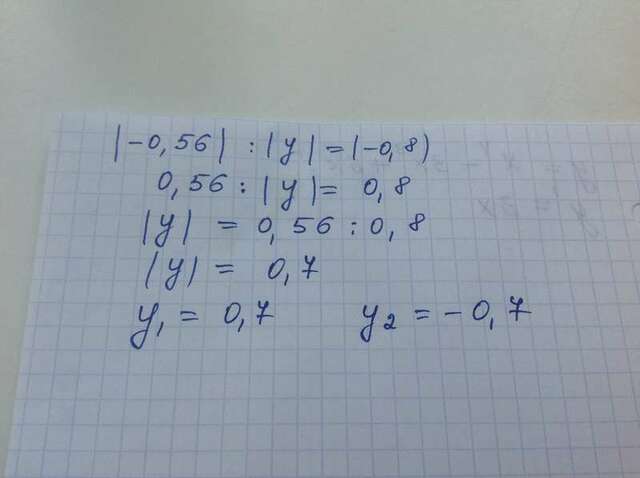 |-0,56| : |y| = |-0,8|
0,56 : |y| = 0,8
|y| = 0,56 : 0,8
|y| = 0,7
y₁ = 0,7 y₂ = -0,7